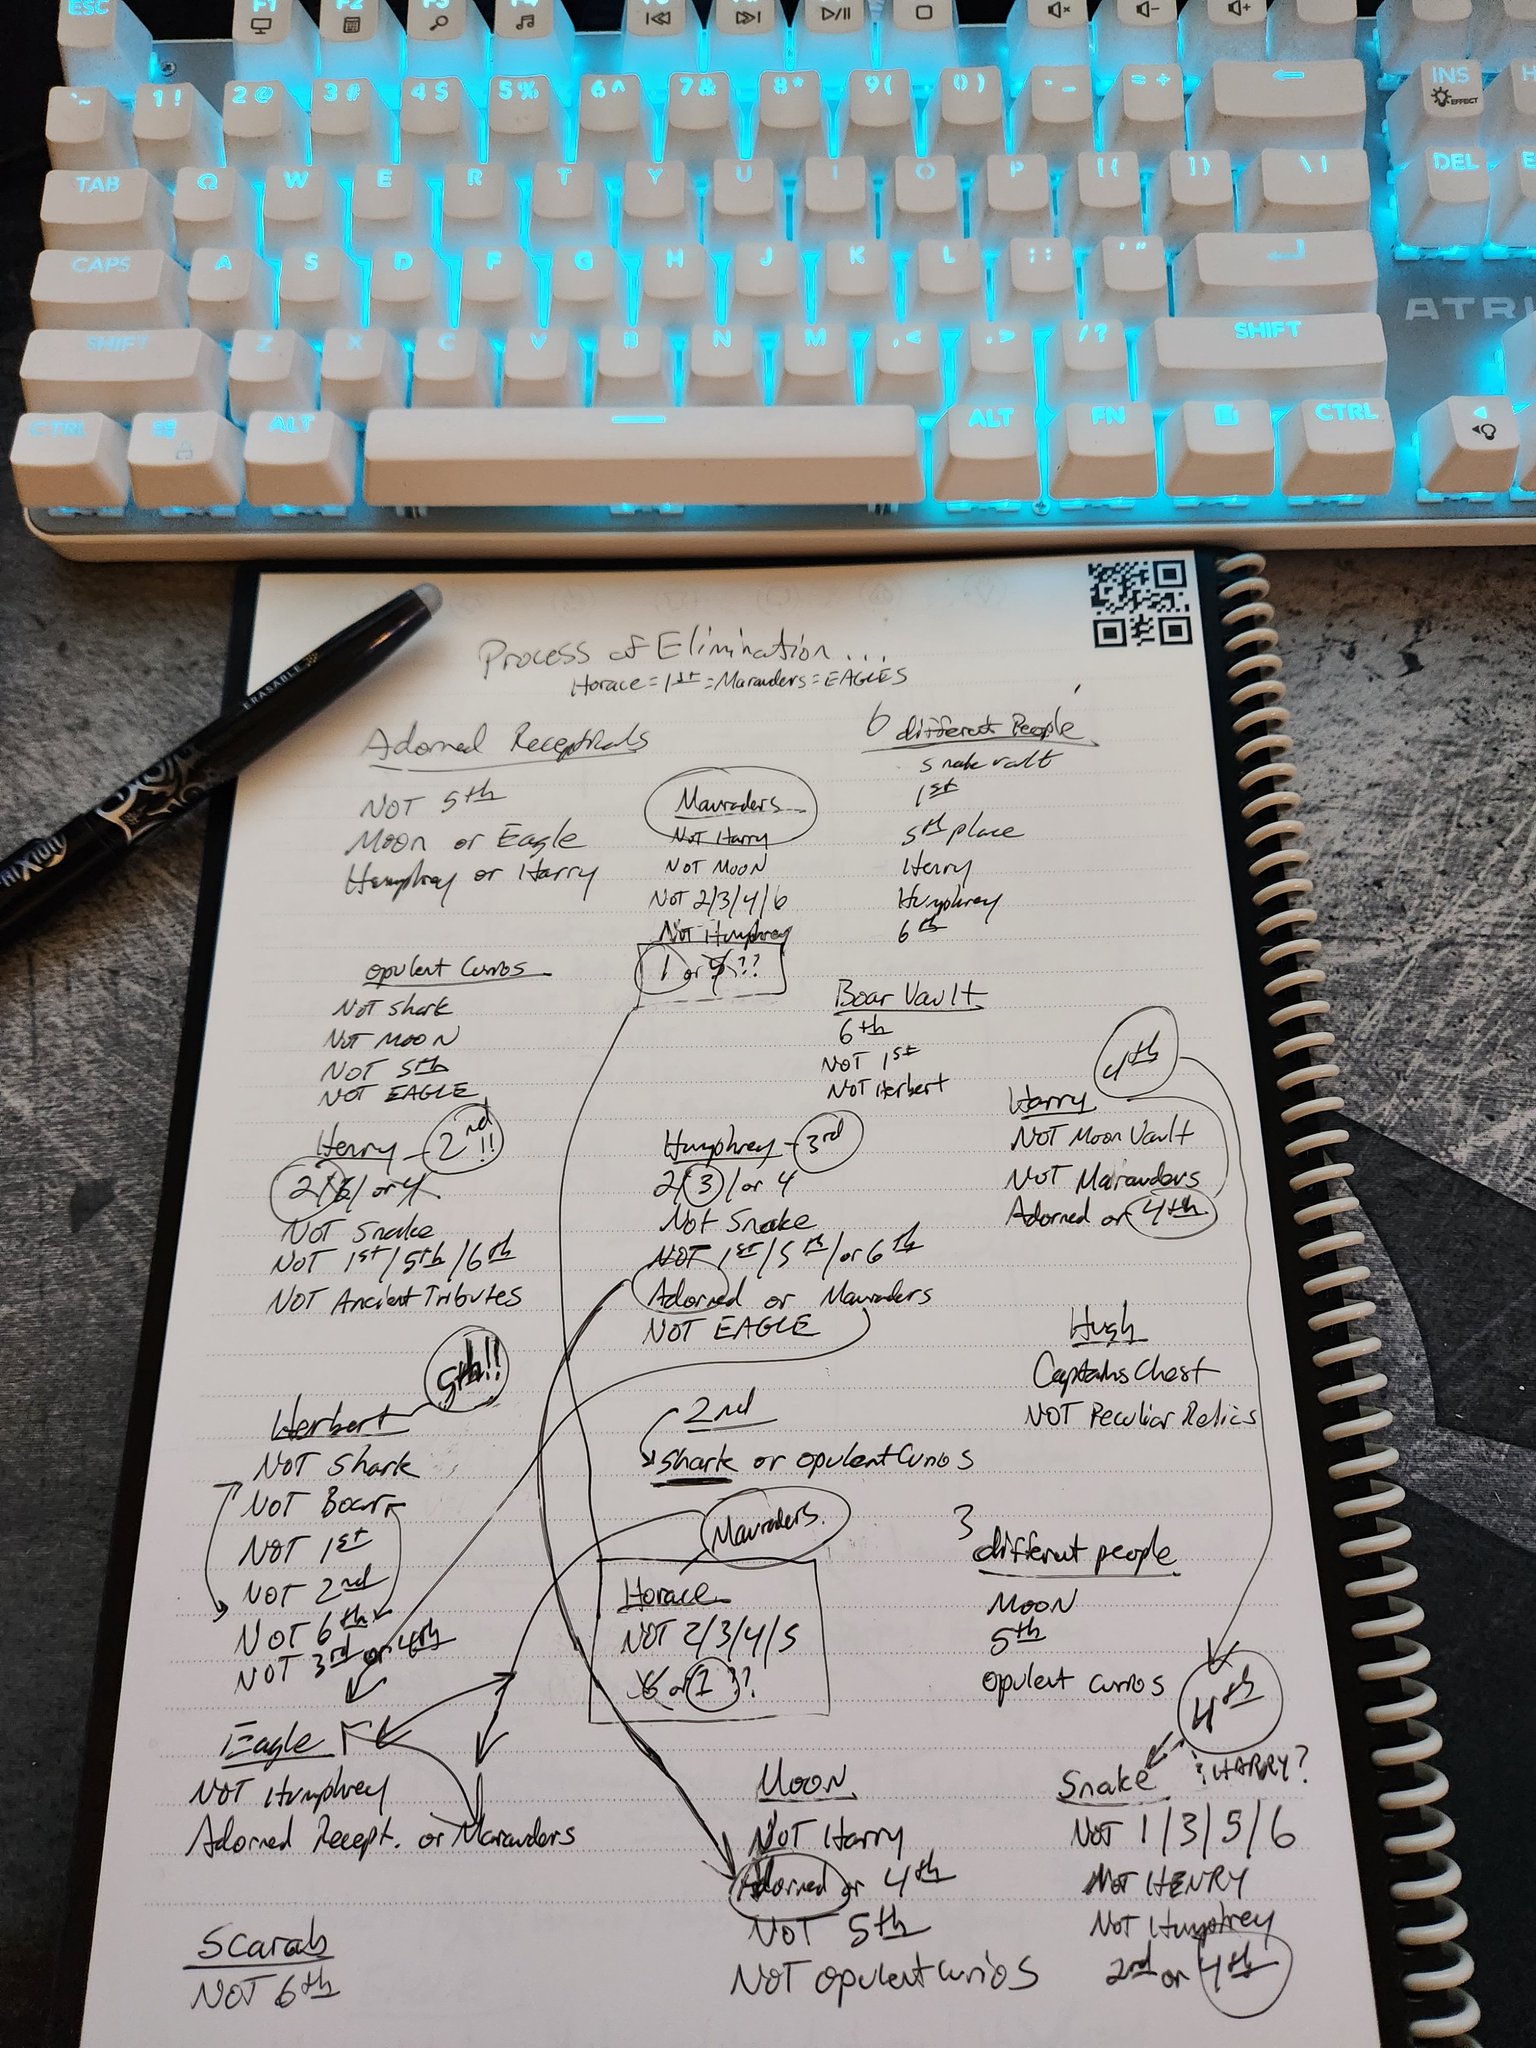 ESC F1 F2 F3 F4
`~ 1! 2@ 3# 4$ 5% 6^ 7& 8* 9( 0) -_ =+ INS
EFFECT
TAB Q W E R T Y U I O P [{ ]} \| DEL
CAPS A S D F G H J K L ;: '"
ATRI
SHIFT Z X C V B N M ,< .> /? SHIFT
CTRL ALT ALT FN CTRL
ERASABLE
Process of Elimination...
Horace = 1st = Marauders = EAGLES
Adorned Recepticals
NOT 5th
Moon or Eagle
Humphrey or Harry
Mauraders
NOT Harry
NOT MOON
NOT 2/3/4/6
Not Humphrey
1 or 5??
6 different People
snake vault
1st
5th place
Henry
Humphrey
6th
opulent Curios
NOT shark
NOT MOON
NOT 5th
NOT EAGLE
Boar Vault
6th
NOT 1st
NOT Herbert
4th
Harry
NOT Moon Vault
NOT Marauders
Adorned or 4th
Henry - 2nd!!
2/3/ or 4
NOT Snake
NOT 1st/5th/6th
NOT Ancient Tributes
Humphrey - 3rd
2/3/ or 4
Not Snake
NOT 1st/5th/or 6th
Adorned or Mauraders
NOT EAGLE
Hugh
Captains Chest
NOT Peculiar Relics
5th!!
Herbert
NOT shark
NOT Boar
NOT 1st
NOT 2nd
NOT 6th
NOT 3rd or 4th
2nd
shark or opulent Curios
Mauraders.
Horace
NOT 2/3/4/5
6 or 1??
3 different people
MOON
5th
opulent curios
4th
: HARRY?
Eagle
NOT Humphrey
Adorned Recept. or Marauders
Moon
NOT Harry
Adorned or 4th
NOT 5th
NOT opulent Curios
Snake
NOT 1/3/5/6
NOT HENRY
NOT Humphrey
2nd or 4th
Scarab
NOT 6th